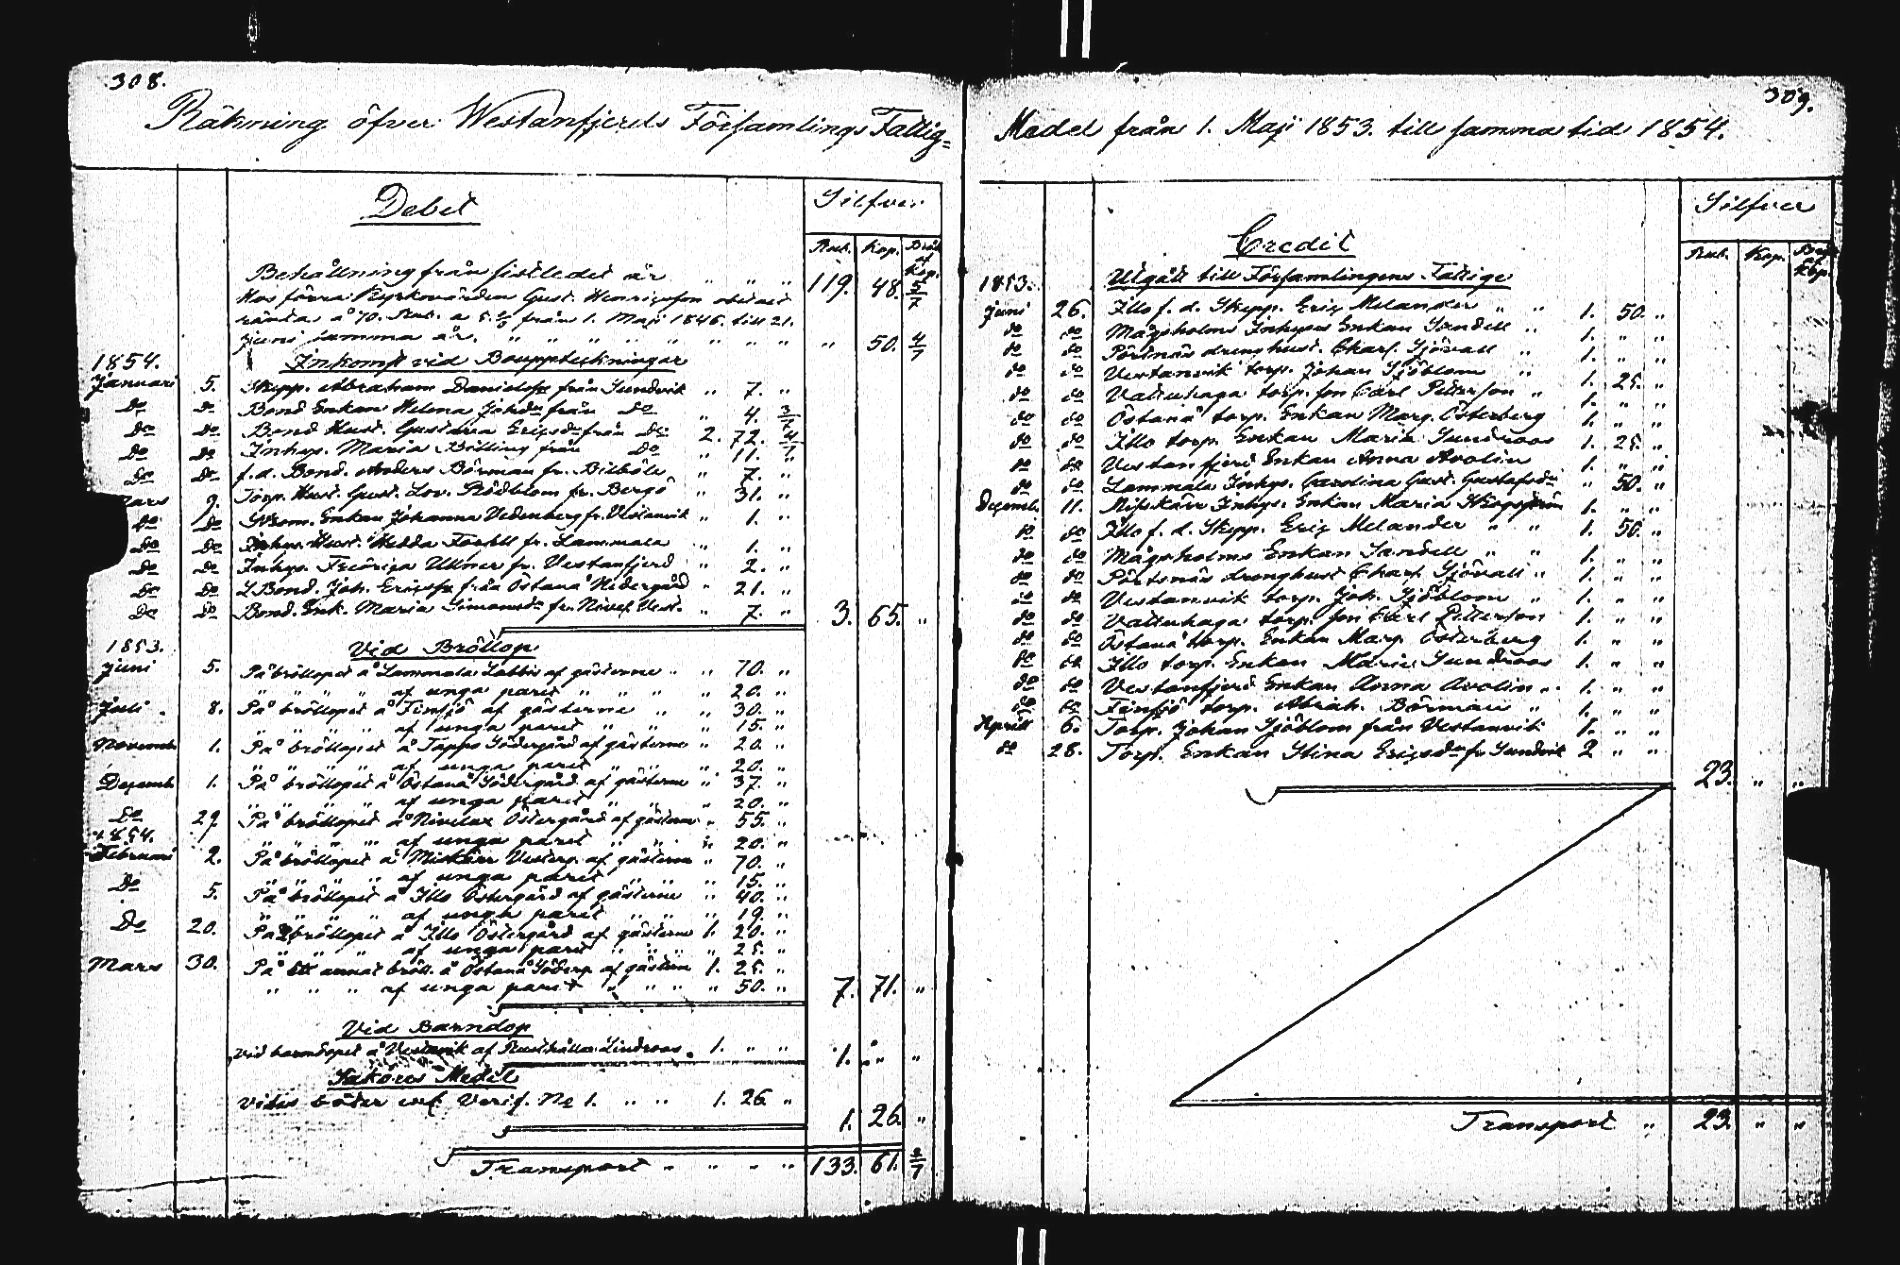 308.
Räkning öfver Westanfjerds Församlings Fattig-
Debet
Silfver
Rub. Kop. Bråk af Kop.
Behållning från sistledet år „ „ „ 119. 48. 5/7
Hos förra Kyrkovärden Gust. Henricsson
ränta å 70. Rub. a 5 % från 1. Maji 1846. till 21.
juni samma år. „ „ „ „ „ „ „ „ „ 50. 4/7
1854. Inkomst vid Bouppteckningar
Januari 5. Skepp. Abraham Danielss från Sundvik „ 7. „
do do Bond Enkan Helena Johsdr från do „ 4. 3/7
do do Bond Hust. Gustava Ericsdr från do 2. 72. 4/7
do do Inhys. Maria Bölling från do „ 11. „
do do f.d. Bond. Anders Börman fr. Bilböle „ 7. „
Mars 9. Torp. Hust. Gust. Lov. Rödblom fr. Bergö „ 31. „
do do Enkan Johanna Vedenberg fr. Vestanvik „ 1. „
do do Inhys. Hust. Hedda fr. Lammala „ 1. „
do do Inhys. Fredrica Ulkner fr. Vestanfjerd „ 2. „
do do Bond. Joh. Ericss från Östanå Nedergård „ 21. „
do do Bond. Enk. Maria Simonsdr fr. Nivel. Vest. „ 7. „ 3. 65. „
1853. Vid Bröllop
Juni 5. På bröllopet å Lammala Labbis af gästerne „ „ 70. „
„ „ „ „ af unga paret „ „ „ „ 20. „
Juli 8. På bröllopet å Finsjö af gästerne „ „ 30. „
„ „ „ „ af unga paret „ „ „ 15. „
Novemb. 1. På bröllopet å Tappo Södergård af gästerne „ 20. „
„ „ „ „ af unga paret „ „ „ 20. „
Decemb. 1. På bröllopet å Östanå Södergård af gästerne „ 37. „
„ „ „ „ af unga paret „ „ „ 20. „
do 27. På bröllopet å Nivelax Östergård af gästerne „ 55. „
„ „ „ „ af unga paret „ „ „ 20. „
1854.
Februari 2. På bröllopet å Misskärr Vesterg. af gästerne „ 70. „
„ „ „ „ af unga paret „ „ „ 15. „
do 5. På bröllopet å Illo Östergård af gästerne „ 40. „
„ „ „ „ af unga paret „ „ „ 19. „
do 20. På bröllopet å Illo Östergård af gästerne 1. 20. „
„ „ „ „ af unga paret „ „ „ 25. „
Mars 30. På ett annat bröll. å Östanå Söderg. af gästern 1. 25. „
„ „ „ af unga paret „ „ „ „ 50. „ 7. 71. „
Vid Barndop
Vid barndopet å Vestanvik af Rusthållar Lindroos. 1. „ „ 1. „ „
Saköres Medel
Vites böter enl. Verif. No 1. „ „ 1. 26. „
1. 26. „
Transport „ „ „ „ 133. 61. 2/7
309.
Medel från 1. Maji 1853. till samma tid 1854.
Credit
Silfver
Rub. Kop. Bråk af Kop.
1853. Utgått till Församlingens Fattige
Juni 26. Illo f. d. Skepp. Eric Melander „ „ 1. 50. „
do do Mågsholms Inhyses Enkan Sandell „ 1. „ „
do do Pörtnäs drenghust. Charl. Sjövall „ 1. „ „
do do Vestanvik torp. Johan Sjöblom „ 1. 25. „
do do Valtuhaga torp. son Carl Petterson „ 1. „ „
do do Östanå torp. Enkan Marg. Österberg 1. „ „
do do Illo torp. Enkan Maria Sundroos 1. 25. „
do do Vestanfjerd Enkan Anna Avolin 1. „ „
do do Lammala Inhys. Carolina Gust. Gustafsdr „ 50. „
Decemb. 11. Misskärr Inhys. Enkan Maria Skogström 1. „ „
do do Illo f. d. Skepp. Eric Melander „ „ 1. 50. „
do do Mågsholms Enkan Sandell „ „ 1. „ „
do do Pörtsnäs drenghust Charl. Sjövall „ 1. „ „
do do Vestanvik torp. Joh. Sjöblom „ 1. „ „
do do Valtuhaga torp. son Carl Petterson 1. „ „
do do Östanå torp. Enkan Marg. Österberg 1. „ „
do do Illo torp. Enkan Maria Sundroos 1. „ „
do do Vestanfjerd Enkan Anna Avolin „ 1. „ „
do do Finsjö torp. Abrah. Börman „ 1. „ „
Aprill 6. Torp. Johan Sjöblom från Vestanvik 1. „ „
do 28. Torp. Enkan Stina Ericsdr fr. Sundvik 2 „ „
23. „ „
Transport „ 23. „ „